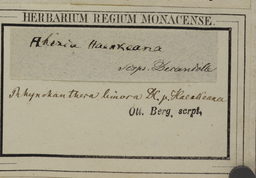 HERBARIUM REGIUM MONACENSE.
Rhexia Haenkeana
scrps. Decandole
Rhynchanthera limosa DC. p. Haenkeana
Ott. Berg. scrpt,